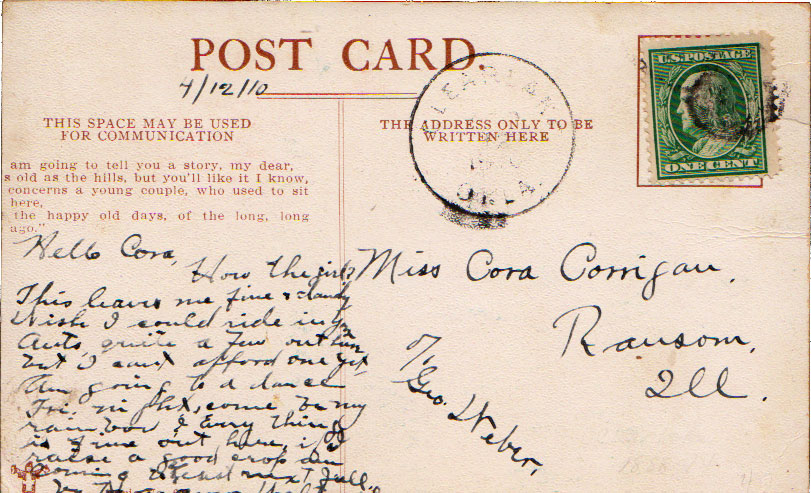 POST CARD.
4/12/10
THIS SPACE MAY BE USED
FOR COMMUNICATION
THE ADDRESS ONLY TO BE
WRITTEN HERE
U.S. POSTAGE
ONE CENT
OKLA.
am going to tell you a story, my dear,
s old as the hills, but you'll like it I know,
concerns a young couple, who used to sit
here,
the happy old days, of the long, long
ago."
Hello Cora,
How the girls
This leaves me fine & dandy
Wish I could ride in yr
Auto quite a few out here
but I cant afford one yet
Am going to a dance
Fri. night, come be my
rainbow, Evry thing
is fine out here, if I
raise a good crop am
coming next fall.
Miss Cora Corrigan,
Ransom,
Ill.
c/o
Geo. Weber,